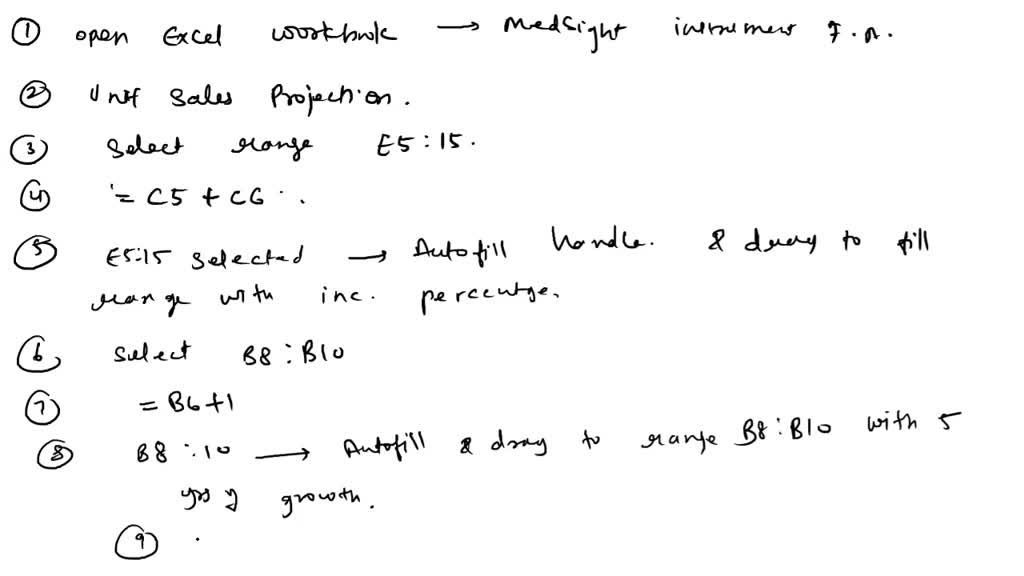 ① open Excel workbook → MedSight instrument F.n.
② Unit Sales Projection.
③ Select range E5:15.
④ = C5 + C6
⑤ E5:15 selected → Autofill handle. & drag to fill
range with inc. percentge.
⑥ Select B8:B10
⑦ = B6+1
⑧ B8:10 → Autofill & drag to range B8:B10 with 5
yrs of growth.
⑨